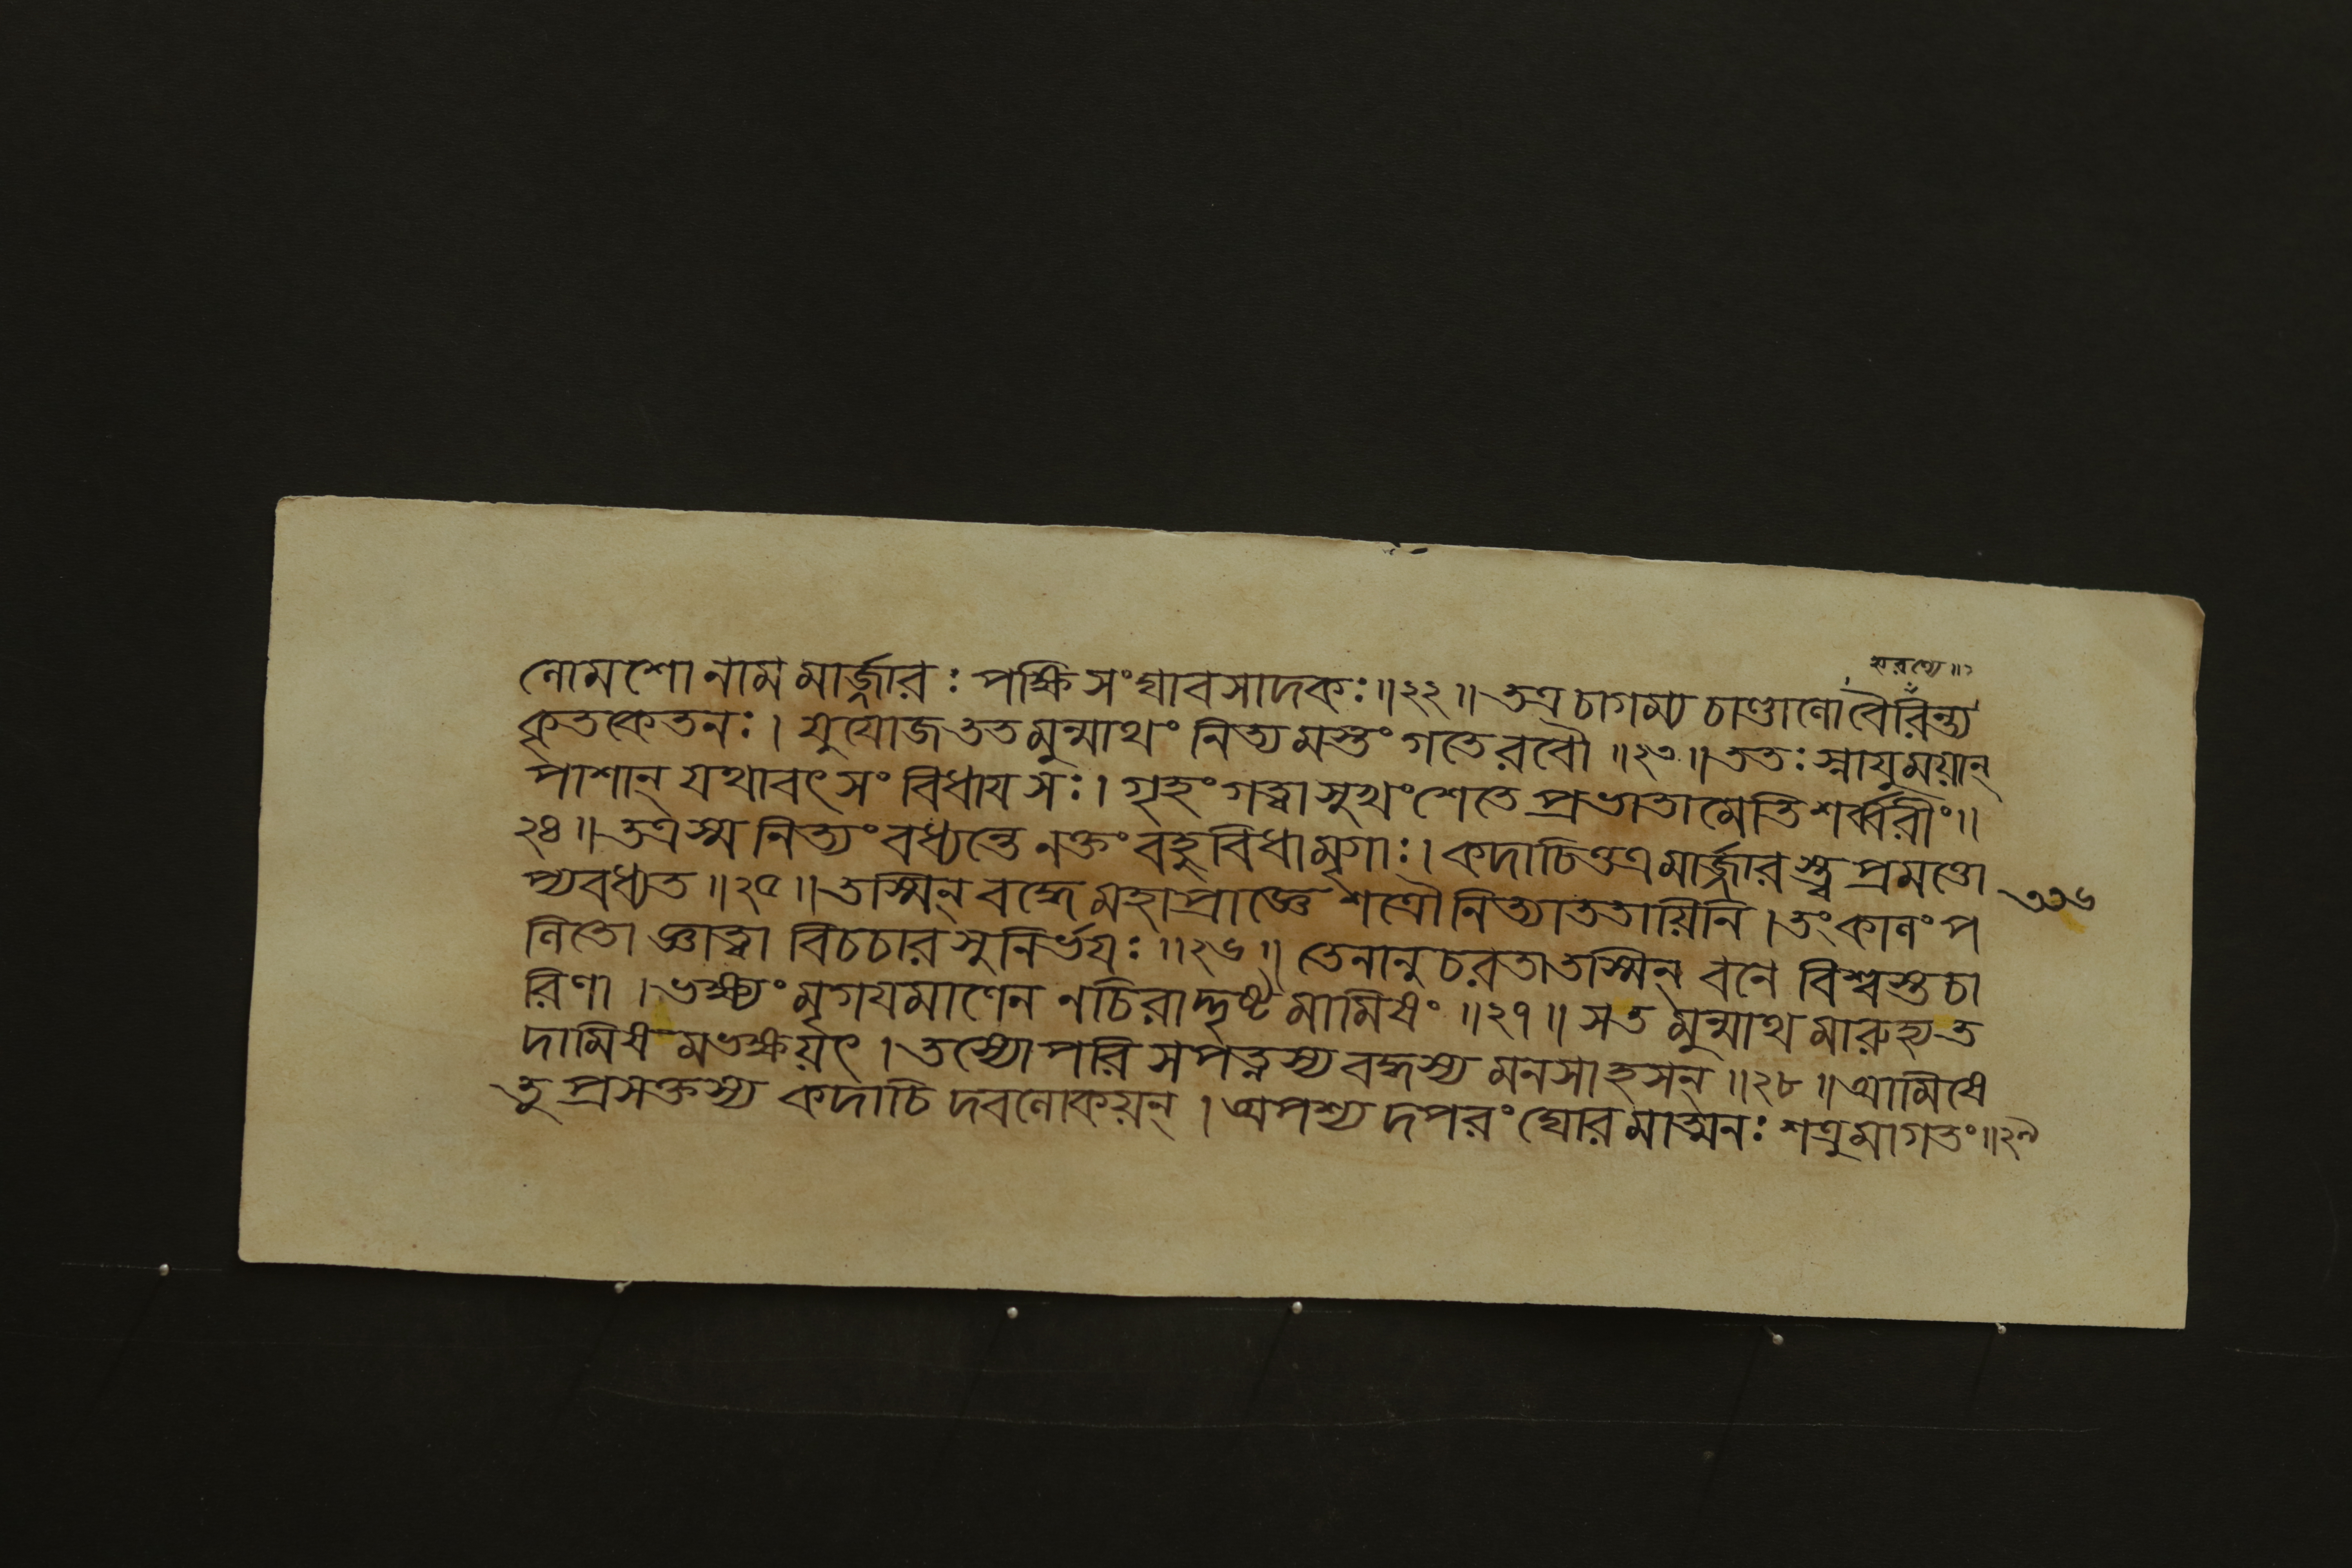 হরণ্যে॥১
লোমশো নাম মার্জ্জারঃ পক্ষিসংঘাবসাদকঃ॥২২॥ তত্র চাগম্য চাণ্ডালো বৈরিন্ত্য
কৃতকেতনঃ। যুযোজ তত মুন্মাথং নিত্যমস্তং গতে রবৌ॥২৩॥ ততঃ স্নাযুময়ান্
পাশান্ যথাবৎ সংবিধায সঃ। গৃহং গত্বা সুখং শেতে প্রভাতামেতি শর্ব্বরীং॥
২৪॥ তত্র স্ম নিত্যং বধ্যন্তে নক্তং বহুবিধা মৃগাঃ। কদাচিত্তত্র মার্জ্জারস্ত্বপ্রমত্তো
প্যবধ্যত॥২৫॥ তস্মিন্ বদ্ধে মহাপ্রাজ্ঞে শত্রৌ নিত্যাততায়িনি। তং কালং প
৩৩৬
লিতো জ্ঞাত্বা বিচচার সুনির্ভযঃ॥২৬॥ তেনানুচরতা তস্মিন্ বনে বিশ্বস্তচা
রিণা। ভক্ষ্যং মৃগযমাণেন নচিরাদ্দৃষ্টমামিষং॥২৭॥ স তমুন্মাথমারুহ্য ত
দামিষমভক্ষয়ৎ। তস্যোপরি সপত্নস্য বদ্ধস্য মনসা হসন্॥২৮॥ আমিষে
তু প্রসক্তস্য কদাচিদবলোকয়ন্। অপশ্যদপরং ঘোরমাত্মনঃ শত্রুমাগতং॥২৯